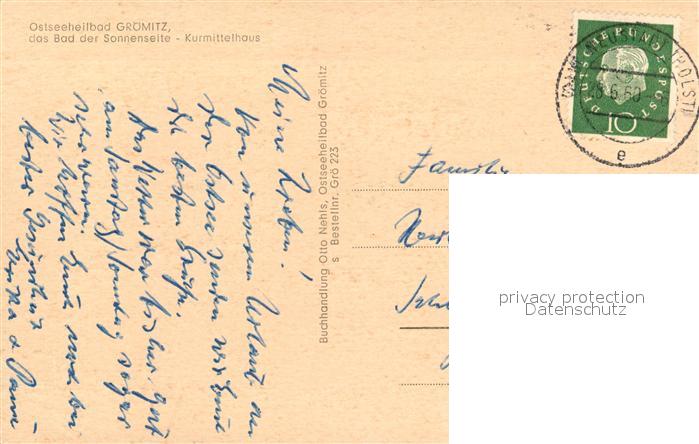 Ostseeheilbad GRÖMITZ,
das Bad der Sonnenseite - Kurmittelhaus
Meine Lieben!
Von unserem Urlaub an
der Ostsee senden wir Euch
die besten Grüße.
Das Wetter war bisher gut
am Samstag/Sonntag sogar
sehr warm.
Wir hoffen Euch
bester Gesundheit
Buchhandlung Otto Nehls, Ostseeheilbad Grömitz
s Bestellnr. Grö 223
DEUTSCHE BUNDESPOST
10
(HOLST)
6.60
e
Familie
privacy protection
Datenschutz